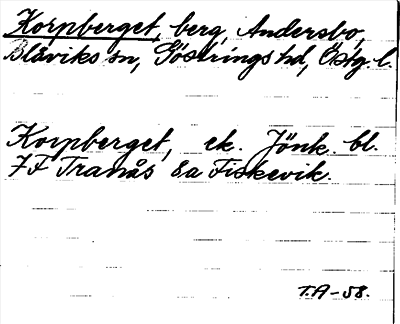 Korpberget, berg, Andersbo,
Blåviks sn, Göstrings hd, Östg. l.
Korpberget, ek. Jönk. bl.
7F Tranås 8a Fiskevik.
T.A-58.